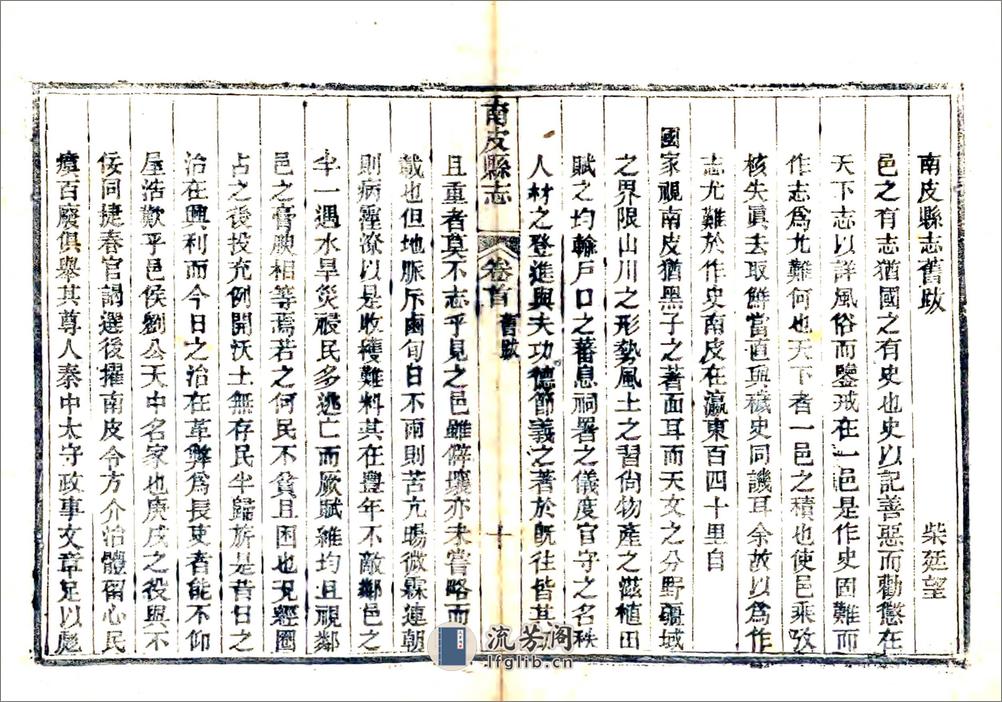 南皮縣志舊跋
柴廷望
邑之有志猶國之有史也史以記善惡而勸懲在
天下志以詳風俗而鑒戒在一邑是作史固難而
作志爲尤難何也天下者一邑之積也使邑乘攷
核失眞去取鮮當直與穢史同譏耳余故以爲作
志尤難於作史南皮在瀛東百四十里自
國家視南皮猶黑子之著面耳而天文之分野疆域
之界限山川之形勢風土之習尙物產之滋植田
賦之均輸戶口之蕃息祠署之儀度官守之名秩
人材之登進與夫功德節義之著於旣往皆其
南皮縣志
卷首
舊跋
十
且重者莫不志乎見之邑雖僻壤亦未嘗略而
載也但地脈斥鹵旬日不雨則苦亢暘微霖連朝
則病霪潦以是收穫難料其在豐年不敵鄰邑之
半一遇水旱災祲民多逃亡而厥賦維均且視鄰
邑之膏腴相等焉若之何民不貧且困也况經圈
占之後投充例開沃土無存民半歸旂是昔日之
治在興利而今日之治在革弊爲長吏者能不仰
屋浩歎乎邑侯劉公天中名家也庚戌之役與不
佞同捷春官謁選後擢南皮令方介治體留心民
瘼百廢俱舉其尊人秦中太守政事文章足以彪
流芳阁
lfglib.cn